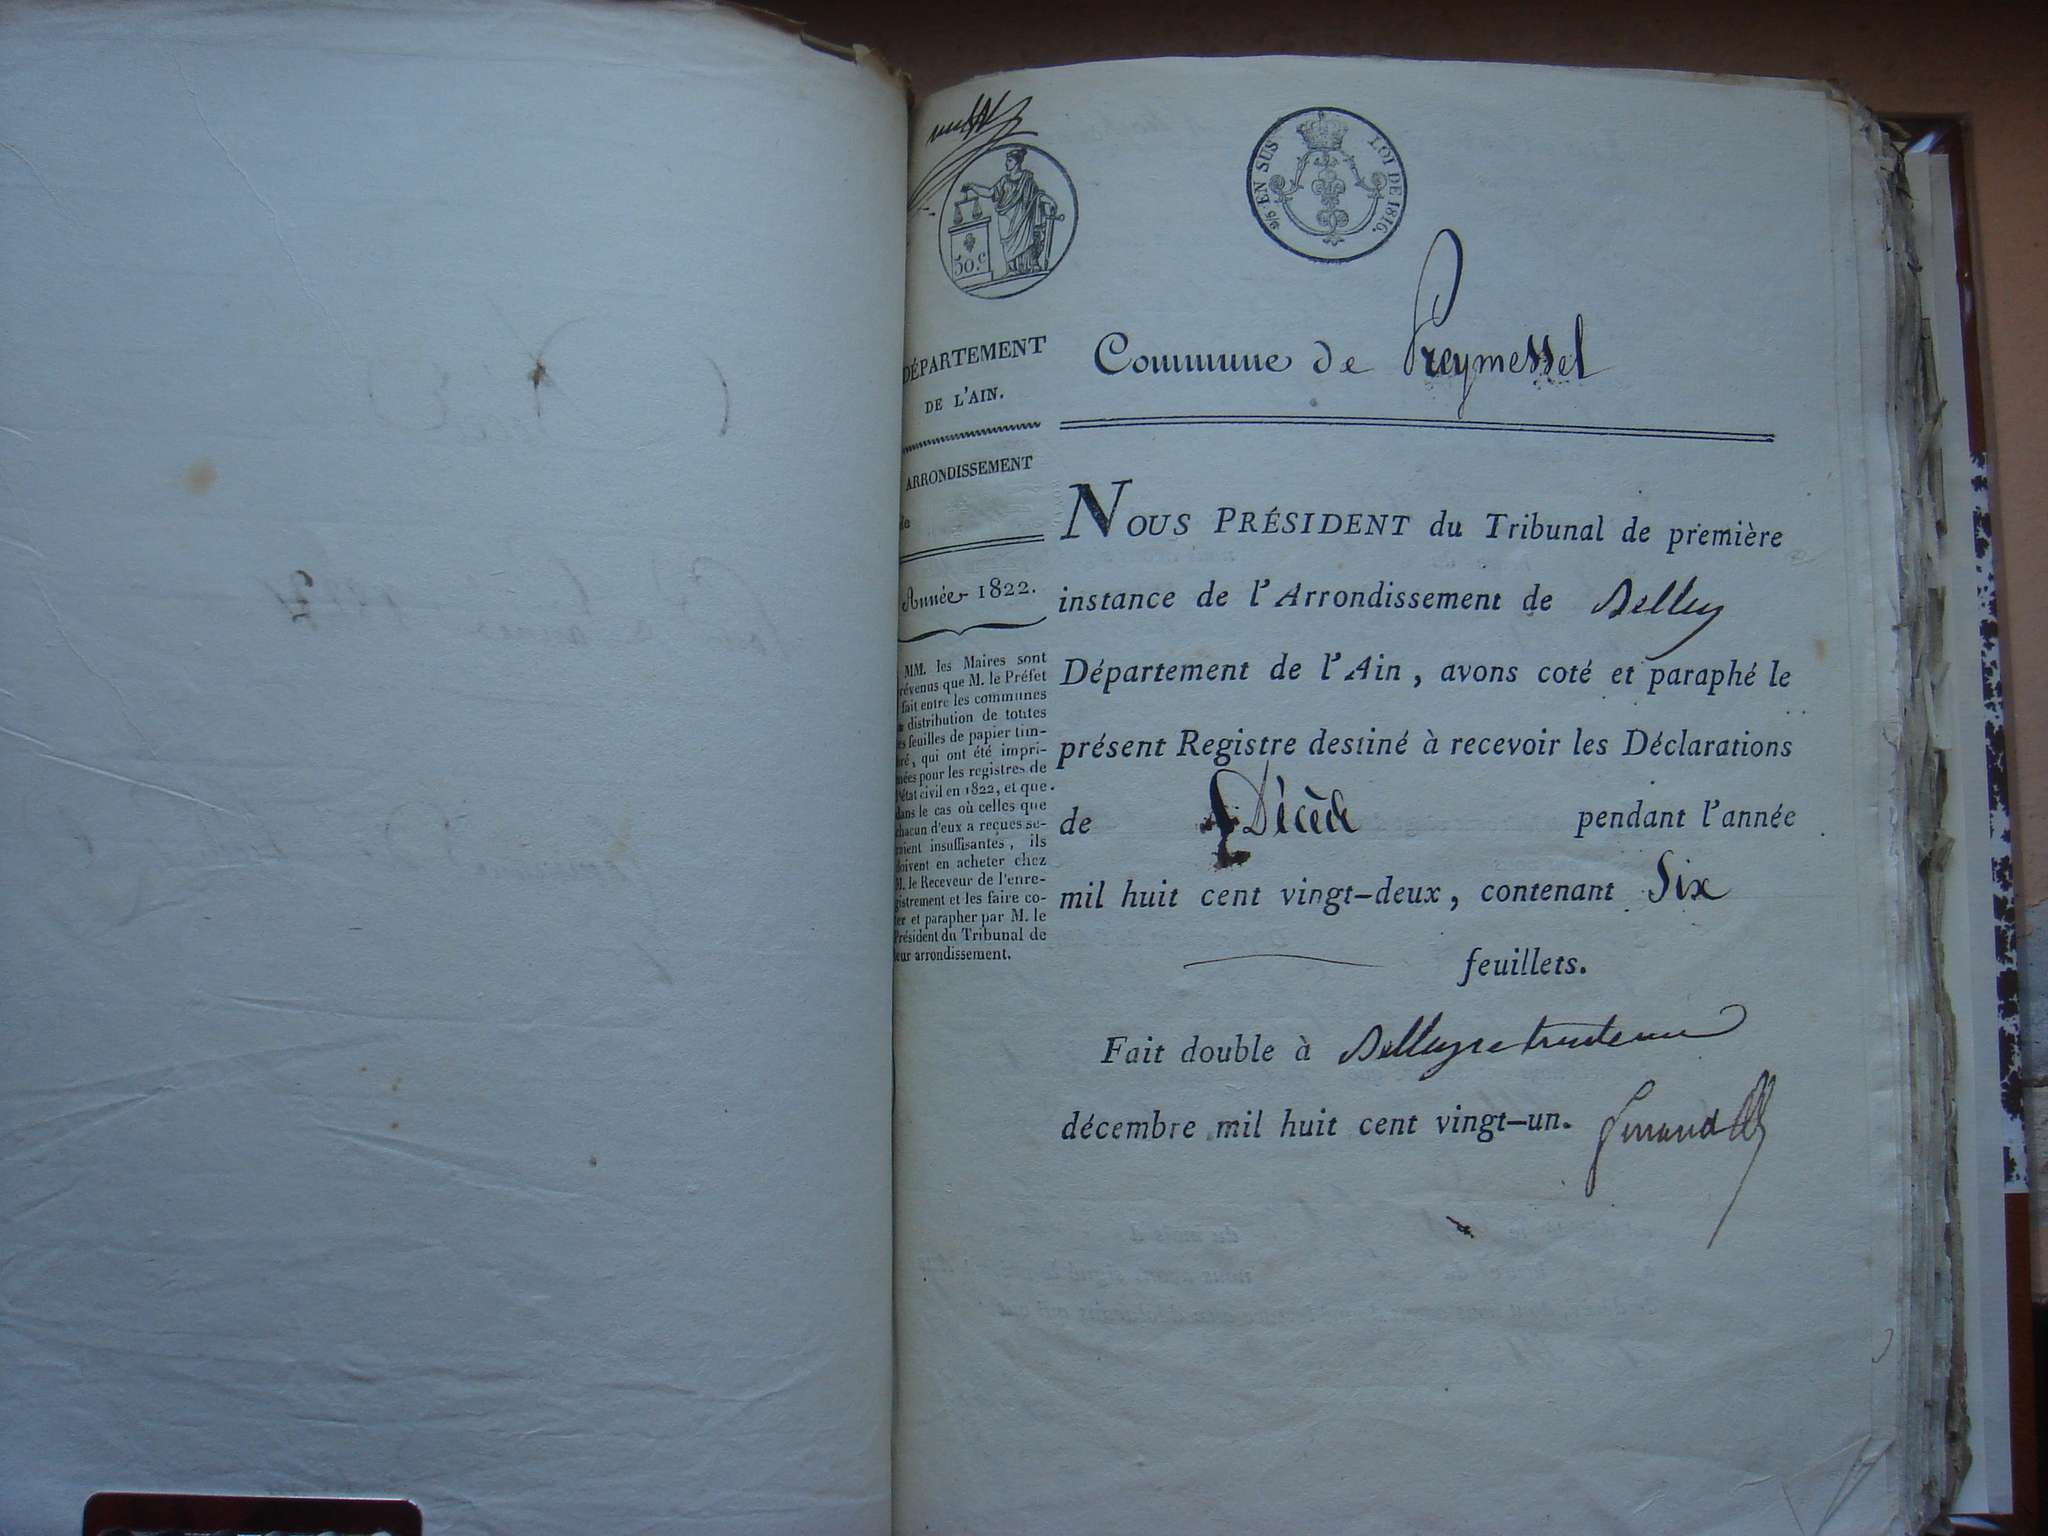 50.c
2/5 EN SUS LOI DE 1816.
DÉPARTEMENT
DE L'AIN.
ARRONDISSEMENT
de
Année 1822.
MM. les Maires sont
révenus que M. le Préfet
fait entre les communes
distribution de toutes
es feuilles de papier tim-
bré, qui ont été impri-
mées pour les registres de
l'état civil en 1822, et que
dans le cas où celles que
chacun d'eux a reçues se-
raient insuffisantes, ils
doivent en acheter chez
M. le Receveur de l'enre-
gistrement et les faire co-
ter et parapher par M. le
Président du Tribunal de
leur arrondissement.
Commune de Preymessel
NOUS PRÉSIDENT du Tribunal de première
instance de l'Arrondissement de Belley
Département de l'Ain, avons coté et paraphé le
présent Registre destiné à recevoir les Déclarations
de Décès pendant l'année
mil huit cent vingt-deux, contenant Six
feuillets.
Fait double à Belley le trente un
décembre mil huit cent vingt-un.